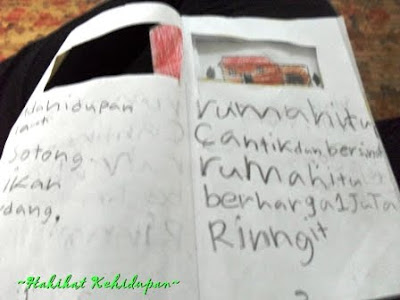 hidupan
laut
Sotong
ikan
dang.
rumahitu
Cantikdan
rumahitu
berharga1JuTa
Rinngit
~Hakikat Kehidupan~